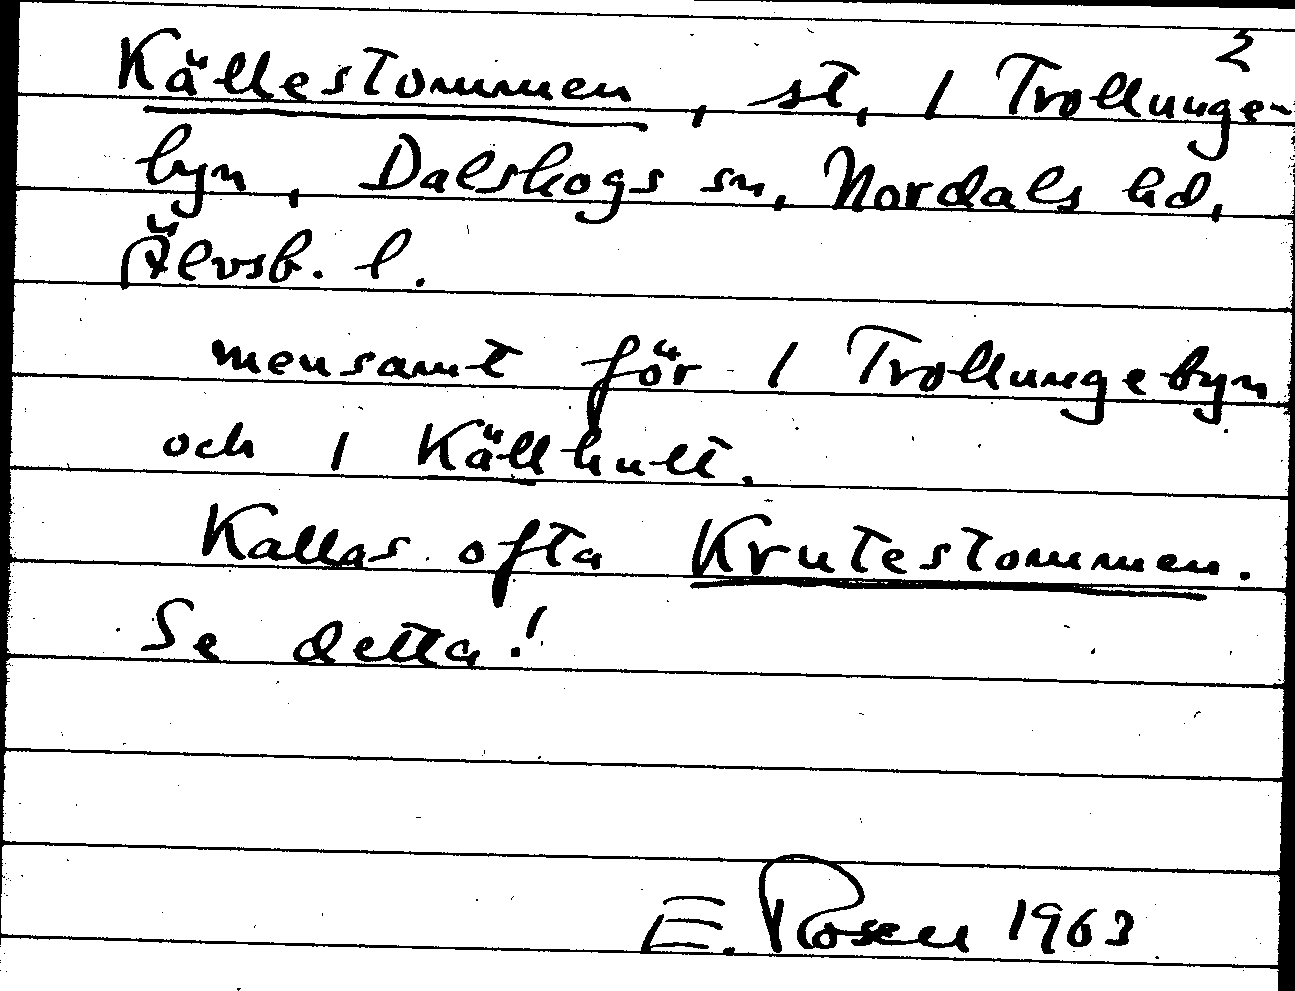 2
Källestommen, st, 1 Trollunge-
byn, Dalskogs sn, Nordals hd,
Älvsb. l.
mensamt för 1 Trollungebyn
och 1 Källhult.
Kallas ofta Krutestommen.
Se detta!
E. Rosen 1963